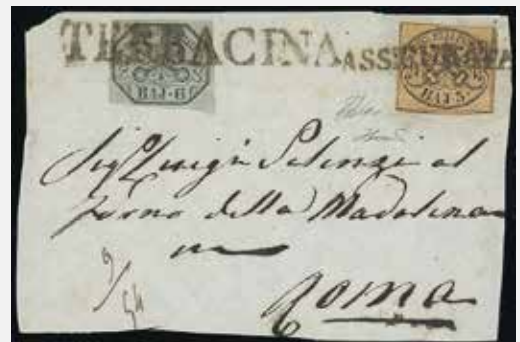 TERRACINA ASSICURATA
BAJ·6 BAJ·5
Sig LuigiSelenzi al
forno della Madalena
Roma
9/54